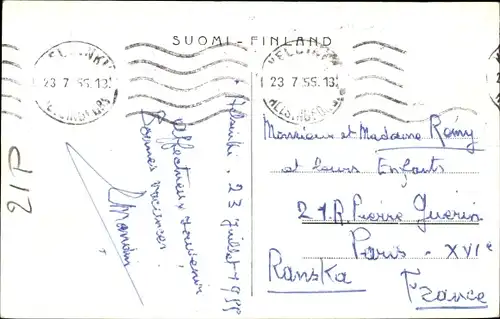 SUOMI - FINLAND
HELSINKI
23.7.55.13
HELSINGFORS
HELSINKI
23.7.55.13
HELSINGFORS
21P
Helsinki. 23 Juillet 1955
Affectueux souvenir
Bonnes vacances.
Monsieur et Madame Rémy
et leurs Enfants
21. R. Pierre Guerin
Paris - XVIe
Ranska France